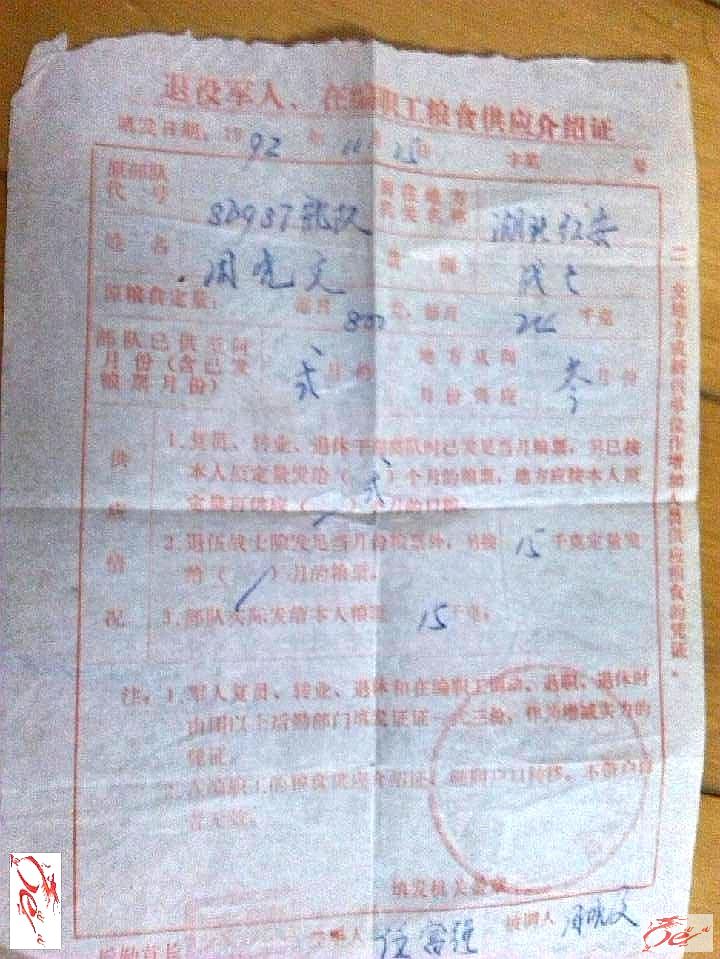 退役军人、在编职工粮食供应介绍证
填发日期：1992年11月25日 字第 号
原部队代号 83987部队
湖北红安
姓名 周晓文
战士
原粮食定量： 每月 公，每月 千克
部队已供至何月份（含已发粮票月份） 贰月份
地方从何月份供应 叁月份
供应情况
1．复员、转业、退休干部离队时已发足当月粮票，另已按
本人原定量发给（贰）个月的粮票，地方应按本人原
定量再供应（ ）个月的口粮。
2．退伍战士除发足当月份粮票外，另按15千克定量发
给（ ）月的粮票。
3．部队实际发给本人粮票15千克。
注：1．军人复员、转业、退休和在编职工调动、退职、退休时
由团以上后勤部门填发证证一式三份，作为增减实力的
凭证。
2．在编职工的粮食供应介绍证，随同户口转移。不带户口
者无效。
填发机关盖章：
二、交地方或新代单位作增加人员供应粮食的凭证。
领证人 周晓文